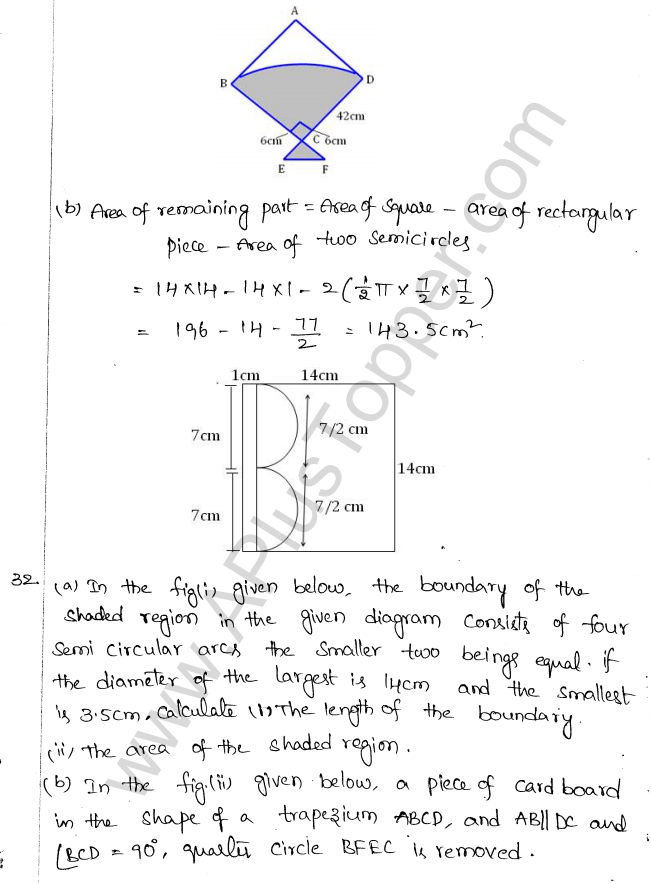 A
B
D
42cm
6cm C 6cm
E F
(b) Area of remaining part = Area of square - area of rectangular
piece - Area of two semicircles
= 14×14 - 14×1 - 2(1/2 π × 7/2 × 7/2)
= 196 - 14 - 77/2 = 143.5cm².
1cm 14cm
7cm
7/2 cm
14cm
7cm
7/2 cm
32. (a) In the fig(i) given below, the boundary of the
shaded region in the given diagram consists of four
semi circular arcs the smaller two beings equal. if
the diameter of the largest is 14cm and the smallest
is 3.5cm. calculate (i) The length of the boundary.
(ii) the area of the shaded region.
(b) In the fig.(ii) given below, a piece of card board
in the shape of a trapezium ABCD, and AB||DC and
∠BCD = 90°, quarter circle BFEC is removed.
www.APlusTopper.com